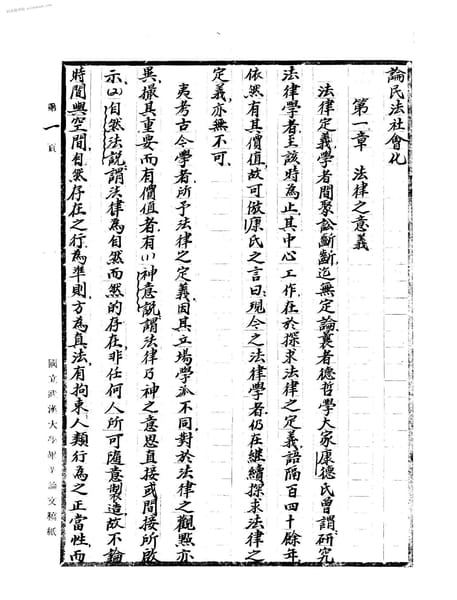 論民法社會化
第一章　法律之意義
法律定義，學者間聚訟斷斷，迄無定論。曩者德哲學大家康德氏曾謂研究
法律學者，至該時為止，其中心工作，在於探求法律之定義，語隔百四十餘年，
依然有其價值，故可倣康氏之言曰：現今之法律學者，仍在繼續探求法律之
定義，亦無不可。
夷考古今學者，所予法律之定義，因其立場學派不同，對於法律之觀點亦
異，撮其重要而有價值者，有(1)神意說，謂法律乃神之意思直接或間接所啟
示。(2)自然法說，謂法律為自然而然的存在，非任何人所可隨意製造，故不論
時間與空間，自然存在之行為準則，方為真法，有拘束人類行為之正當性，而
第一頁
國立武漢大學畢業論文稿紙